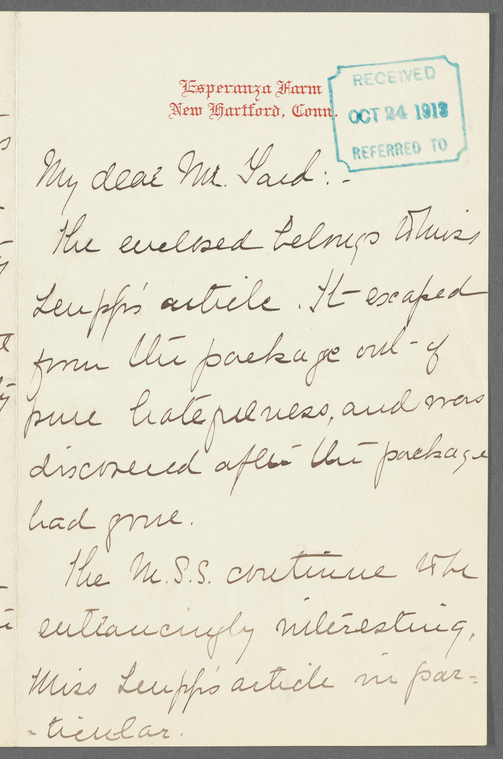 Esperanza Farm
New Hartford, Conn.
RECEIVED
OCT 24 1913
REFERRED TO
My dear Mr. Gard:-
The enclosed belongs to Miss
Leupp's article. It escaped
from the package out of
pure hatefulness, and was
discovered after the package
had gone.
The M.S.S. continue to be
entrancingly interesting,
Miss Leupp's article in par-
-ticular.